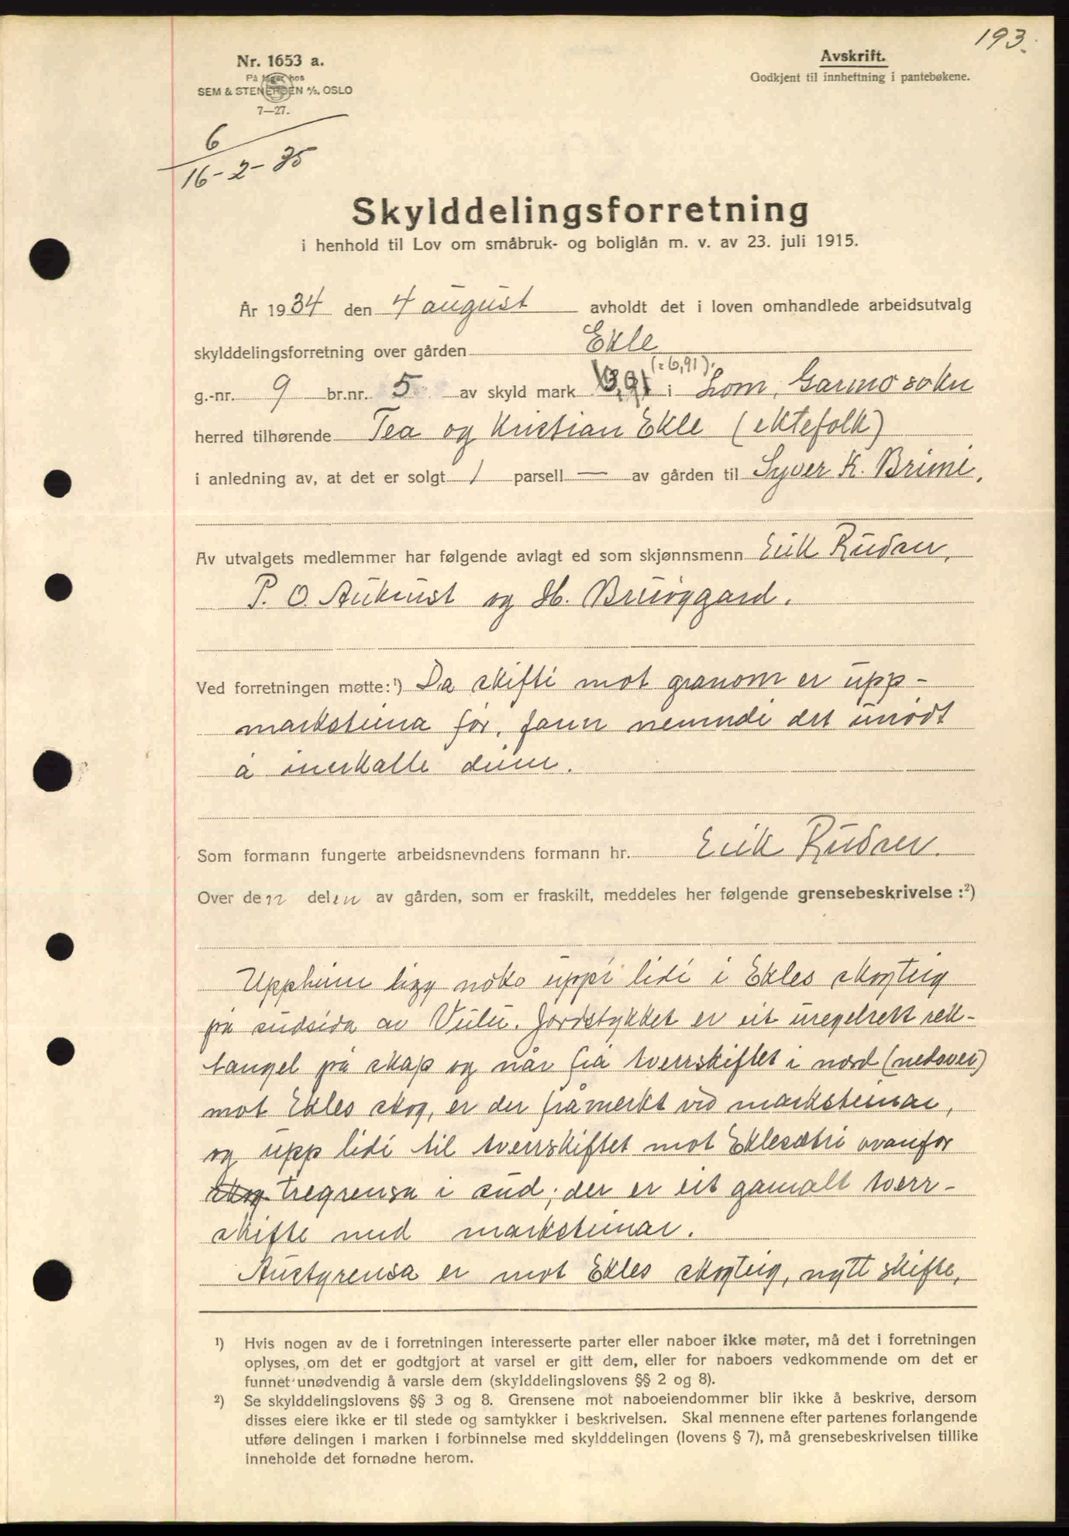 193.
Nr. 1653 a.
På lager hos
SEM & STENERSEN A/S, OSLO
7—27.
Avskrift.
Godkjent til innheftning i pantebøkene.
6
16-2-35
Skylddelingsforretning
i henhold til Lov om småbruk- og boliglån m. v. av 23. juli 1915.
År 1934 den 4 august avholdt det i loven omhandlede arbeidsutvalg
skylddelingsforretning over gården Ekle
(=6,91).
g.-nr. 9 br.nr. 5 av skyld mark i Lom, Garmo sokn
herred tilhørende Tea og Kristian Ekle (ektefolk)
i anledning av, at det er solgt 1 parsell — av gården til Syver K. Brimi.
Av utvalgets medlemmer har følgende avlagt ed som skjønnsmenn Erik Rudser,
P. O. Aukrust og H. Bruøygard.
Ved forretningen møtte:¹) Da skifti mot granom er upp-
marksteina før, fann nemndi det unødt
å innkalle deim.
Som formann fungerte arbeidsnevndens formann hr. Erik Rudser.
Over den delen av gården, som er fraskilt, meddeles her følgende grensebeskrivelse :²)
Uppheim ligg noko uppi lidi i Ekles skogteig
på sudsida av Vulu. Jordstykket er eit uregelrett rek-
tangel på skap og når frå tverrskiftet i nord (nedover)
mot Ekles skog, er der fråmerkt vid marksteinar,
og upp lidi til tverrskiftet mot Eklesætri ovanfor
skog tregrensa i sud; der er eit gamalt tverr-
skifte med marksteinar.
Austgrensa er mot Ekles skogteig, nytt skifte,
¹) Hvis nogen av de i forretningen interesserte parter eller naboer ikke møter, må det i forretningen
oplyses, om det er godtgjort at varsel er gitt dem, eller for naboers vedkommende om det er
funnet unødvendig å varsle dem (skylddelingslovens §§ 2 og 8).
²) Se skylddelingslovens §§ 3 og 8. Grensene mot naboeiendommer blir ikke å beskrive, dersom
disses eiere ikke er til stede og samtykker i beskrivelsen. Skal mennene efter partenes forlangende
utføre delingen i marken i forbinnelse med skylddelingen (lovens § 7), må grensebeskrivelsen tillike
inneholde det fornødne herom.